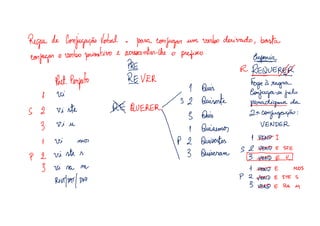 Regra de Conjugação Verbal - para conjugar um verbo derivado, basta
conjugar o verbo primitivo e acrescentar-lhe o prefixo
PRE
REVER
Pret. Perfeito
1 vi
S 2 vi ste
3 vi u
1 vi mos
P 2 vi ste s
3 vi ra m
QUERER
1 Quis
S 2 Quiseste
3 Quis
1 Quisemos
P 2 Quisestes
3 Quiseram
REQUERER
Foge à regra
Conjuga-se pelo
paradigma da
2ª conjugação:
VENDER
1 VEND I
S 2 VEND E STE
3 VEND E U
1 VEND E MOS
P 2 VEND E STE S
3 VEND E RA M